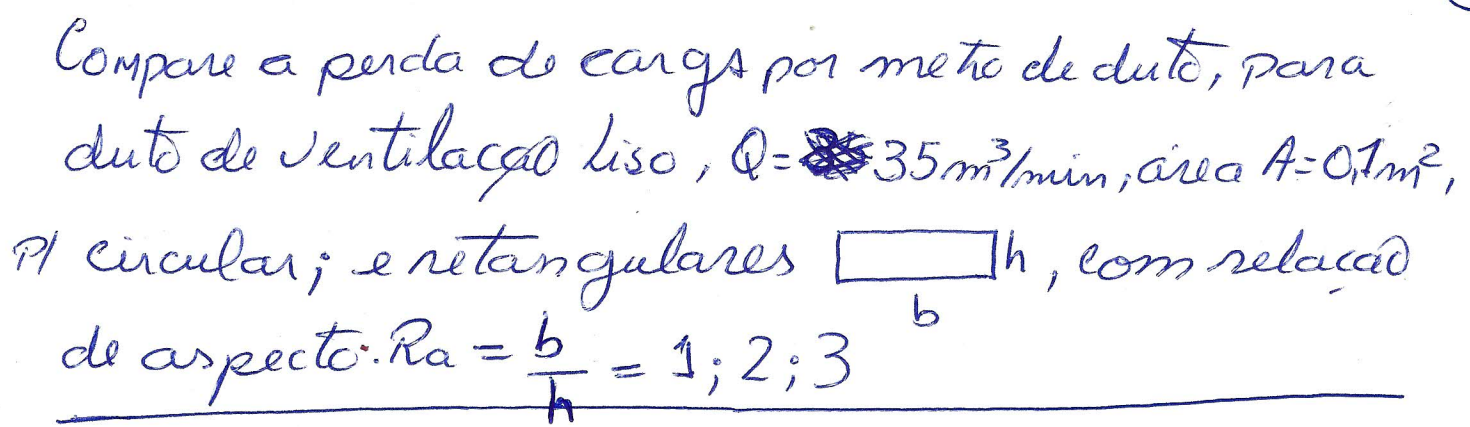 Compare a perda de carga por metro de duto, para
duto de ventilação liso, Q = 35 m³/min, área A = 0,1 m²,
p/ circular; e retangulares h, com relação
b
de aspecto: Ra = b/h = 1; 2; 3